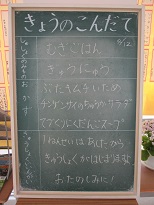 きょうのこんだて
9/12
むぎごはん
ぎゅうにゅう
ぶたキムチいため
チンゲンサイのちゅうかサラダ
てづくりにくだんごスープ
1ねんせいは、あしたから
きゅうしょくがはじまりますね
おたのしみに!